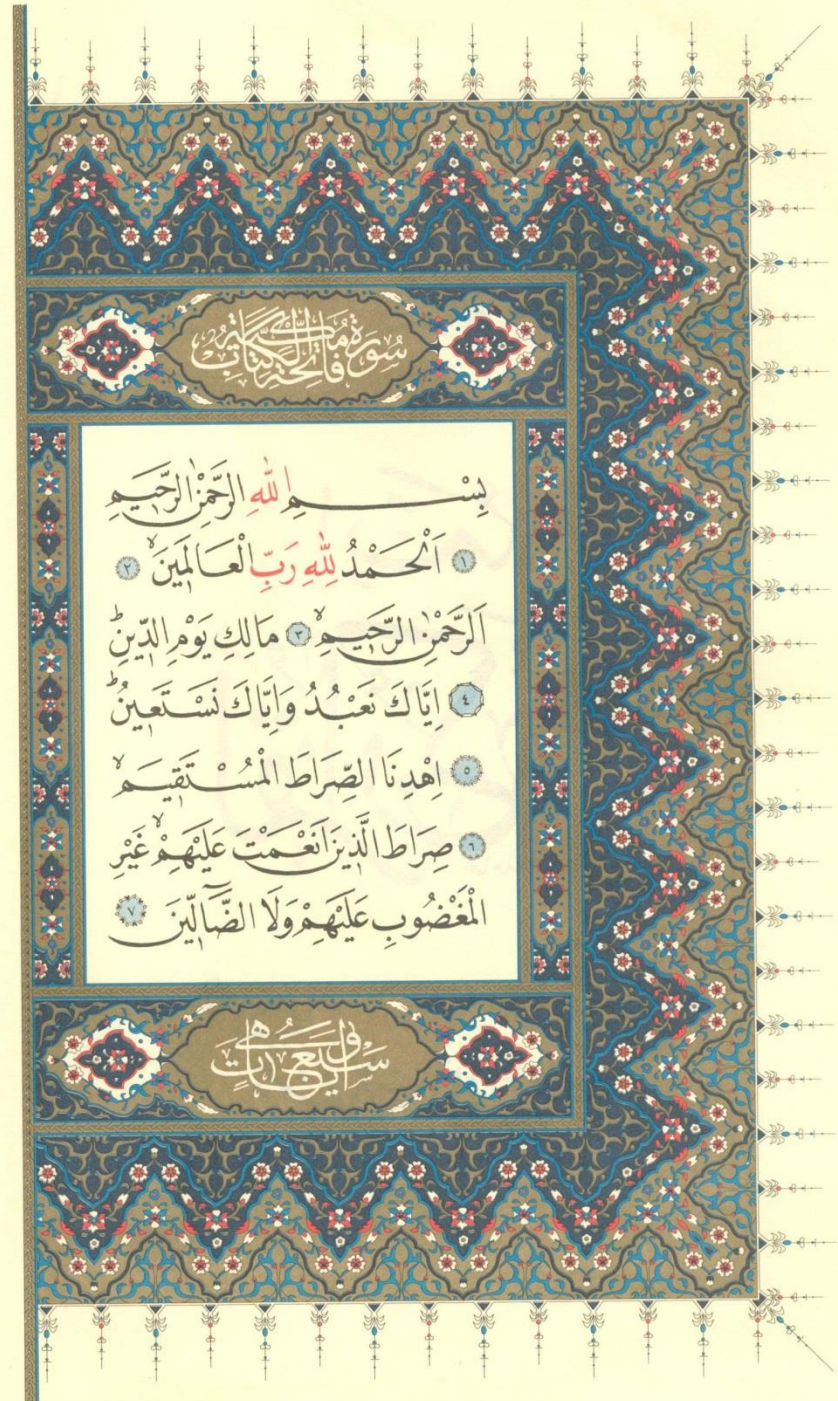 سُورَةُ فَاتِحَةِ الْكِتَابِ مَكِّيَّةٌ
بِسْمِ اللّٰهِ الرَّحْمٰنِ الرَّحِيمِ
١ اَلْحَمْدُ لِلّٰهِ رَبِّ الْعَالَمِينَۙ ٢
اَلرَّحْمٰنِ الرَّحِيمِۙ ٣ مَالِكِ يَوْمِ الدِّينِۜ
٤ اِيَّاكَ نَعْبُدُ وَاِيَّاكَ نَسْتَعِينُۜ
٥ اِهْدِنَا الصِّرَاطَ الْمُسْتَقِيمَۙ
٦ صِرَاطَ الَّذِينَ اَنْعَمْتَ عَلَيْهِمْۙ غَيْرِ
الْمَغْضُوبِ عَلَيْهِمْ وَلَا الضَّٓالِّينَ ٧
وَهِيَ سَبْعُ اٰيَاتٍ